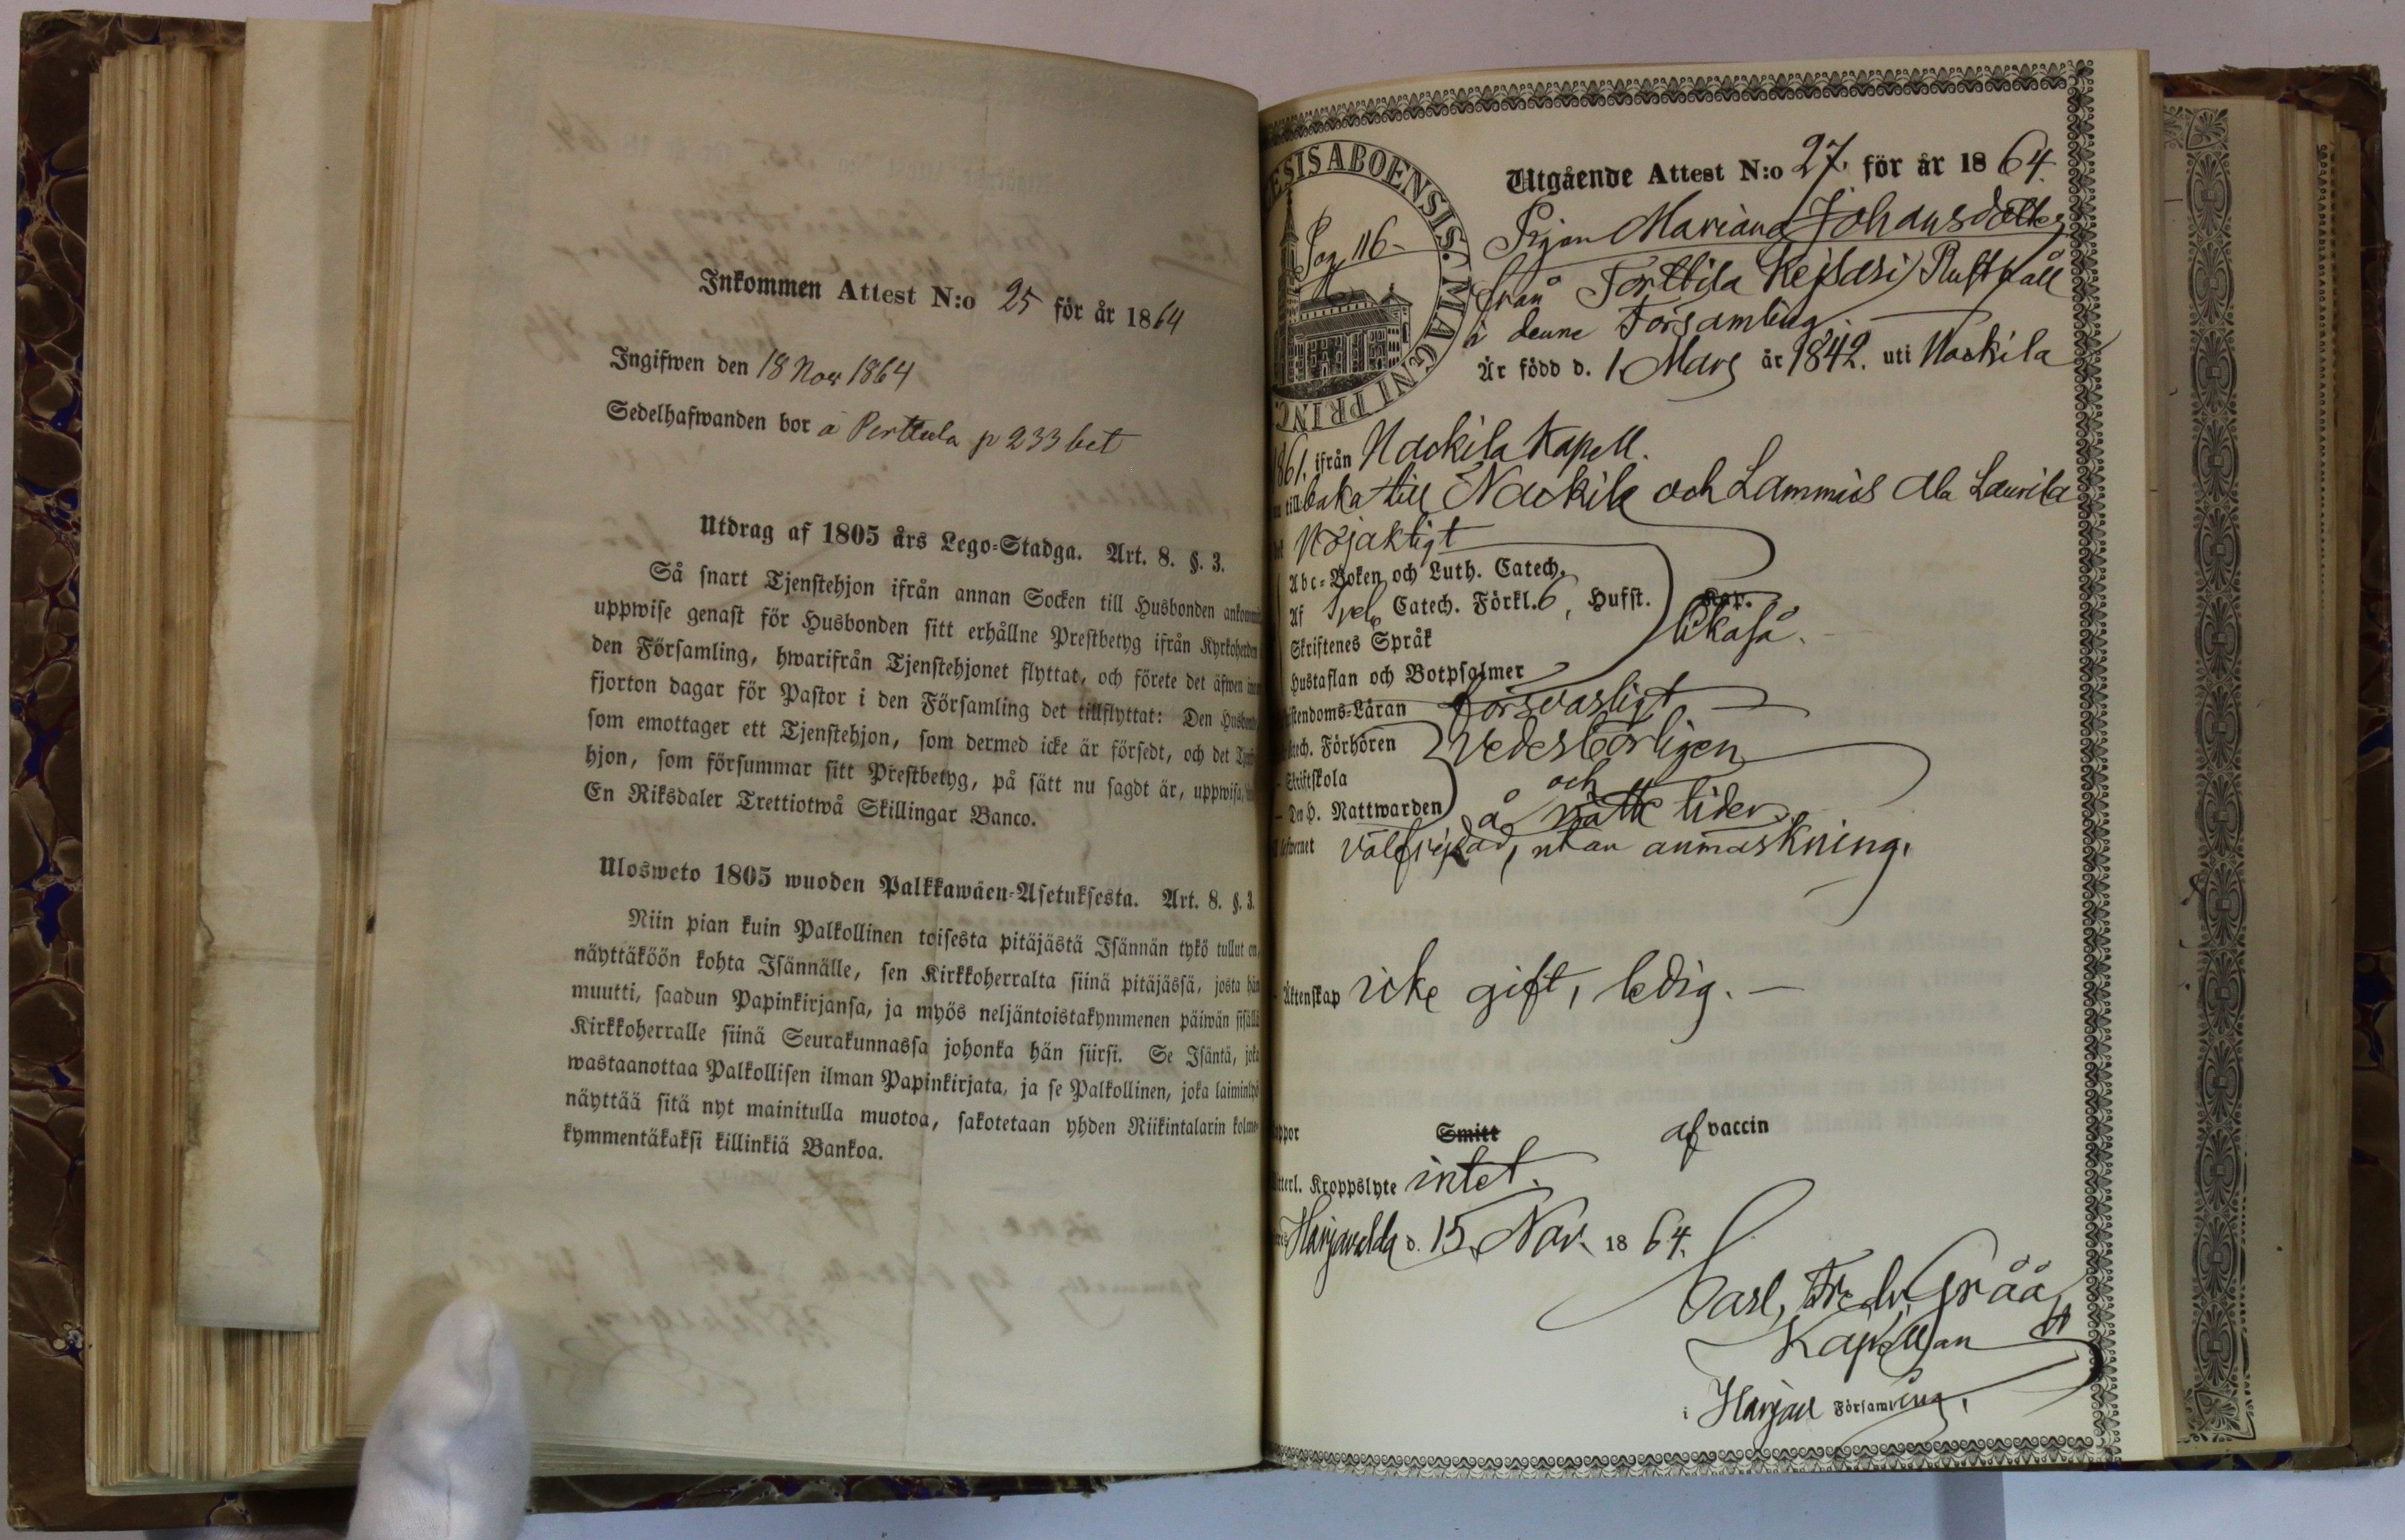 Inkommen Attest N:o 25 för år 1864
Ingifwen den 18 Nov 1864
Sedelhafwanden bor å Perttula p 233 bet
Utdrag af 1805 års Lego-Stadga. Art. 8. §. 3.
Så snart Tjenstehjon ifrån annan Socken till Husbonden
uppwise genast för Husbonden sitt erhållne Prestbetyg ifrån Kyrkoherden
den Församling, hwarifrån Tjenstehjonet flyttat, och förete det äfwen
fjorton dagar för Pastor i den Församling det tillflyttat: Den
som emottager ett Tjenstehjon, som dermed icke är försedt, och det
hjon, som försummar sitt Prestbetyg, på sätt nu sagdt är, uppwisa,
En Riksdaler Trettiotwå Skillingar Banco.
Ulosweto 1805 wuoden Palkkawäen-Asetuksesta. Art. 8. §. 3.
Niin pian kuin Palkollinen toisesta pitäjästä Isännän tykö tullut on,
näyttäköön kohta Isännälle, sen Kirkkoherralta siinä pitäjässä, josta hän
muutti, saadun Papinkirjansa, ja myös neljäntoistakymmenen päiwän sisällä
Kirkkoherralle siinä Seurakunnassa johonka hän siirsi. Se Isäntä, joka
wastaanottaa Palkollisen ilman Papinkirjata, ja se Palkollinen, joka laiminlyö
näyttää sitä nyt mainitulla muotoa, sakotetaan yhden Riikintalarin kolme-
kymmentäkaksi killinkiä Bankoa.
ESIS ABOENSIS. MAGNI PRINC.
Pag 116
Utgående Attest N:o 27. för år 1864.
Pigan Mariana Johansdotter
från Torttila Keisari Rusthåll
i denne Församling.
Är född d. 1 Mars år 1842. uti Nackila
1861. ifrån Nackila Kapell.
tillbaka till Nackila och Lammais Ala Laurila
Nöjaktigt
Abc-Boken och Luth. Catech.
Af Catech. Förkl. 6, Hufst. Kap.
likaså.
Skriftenes Språk
Hustaflan och Botpsalmer
stendoms-Läran försvarligt
tech. Förhören vederbörligen
Skriftskola
och
Den H. Nattwarden å rätte tider
välfrejdad, utan anmärkning.
Äktenskap icke gift, ledig.
Smitt af vaccin
tterl. Kroppslyte intet.
Harjavalda d. 15. Nov. 1864.
Carl Fredr. Gråå
Kapellan
i Harjav Församling.